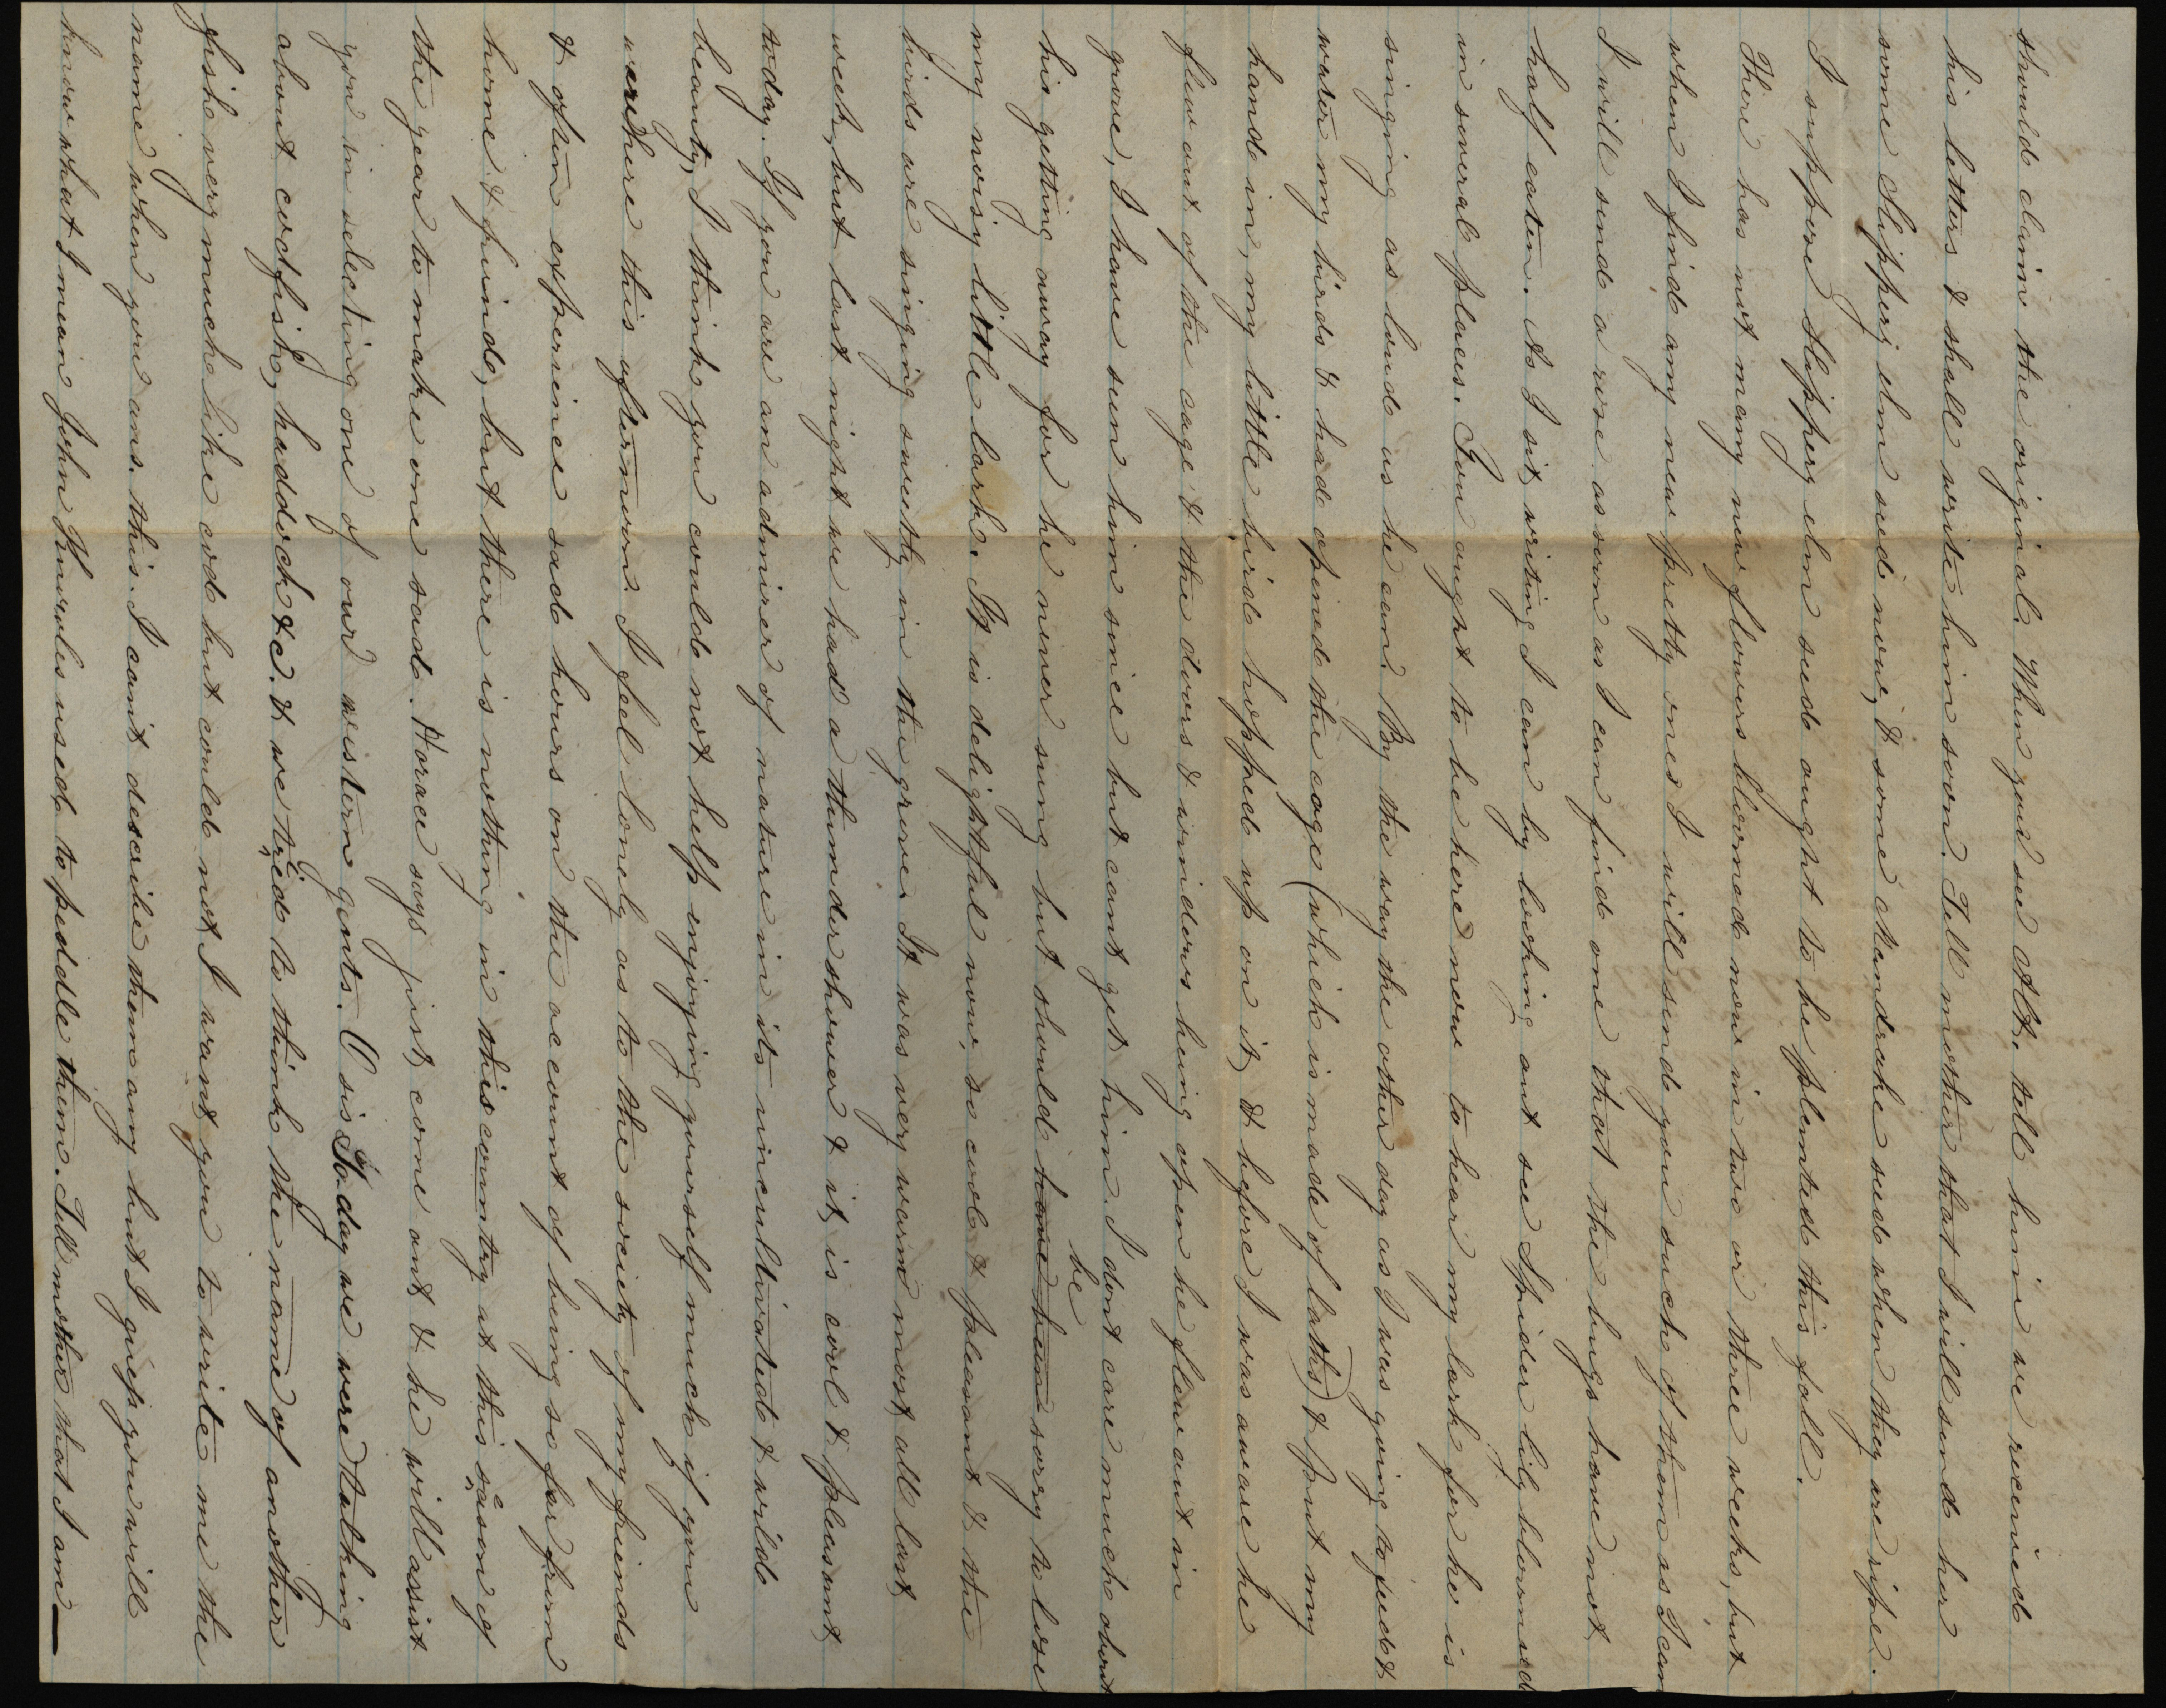 should claim the original. When you see Alt. tell him we received
his letters & shall write him soon. Tell mother that I will send her
some Slippery elm seed now, & some Mandrake seed when they are ripe.
I suppose Slippery elm seed aught to be plented this fall.
There has not many new flowers bloomed now in two or three weeks, but
when I find any new pretty ones I will send you such of them as I can
I will send a rose as soon as I can find one that the bugs have not
half eaten. As I sit writing I can by looking out see Spider lily bloomed
in several places. You aught to be here now to hear my lark for he is
singing as loud as he can. By the way the other day as I was going to feed &
water my birds & had opened the cage (which is made of laths) & put my
hand in, my little bird hopped up on it, & before I was aware he
flew out of the cage & the doors & windows being open he flew out in
grove, I have seen him since but cant get him. I dont care much about
his getting away for he never sung but should be sorry to lose
my noisy little lark. It is delightful now, so cool & pleasant & the
birds are singing sweetly in the grove. It was very warm most all last
week, but last night we had a thunder shower & it is cool & pleasant
today. If you are an admirer of nature in its uncultivated & wild
beauty, I think you could not help injoying yourself much if you
were here this afternoon. I feel lonely as to the society of my friends
& often experience sad hours on the account of being so far from
home & friends, but there is nothing in this country at this season of
the year to make one sad. Horace says jist come out & he will assist
you in selecting one of our western gents. O sis Today we were talking
about codfish, haddock &c. & we tried to think the name of another
fish very much like cod but could not, I want you to write me the
name when you ans. this. I cant describe them any but I guess you will
know what I mean John Knowles used to peddle them. Tell mother that I am—